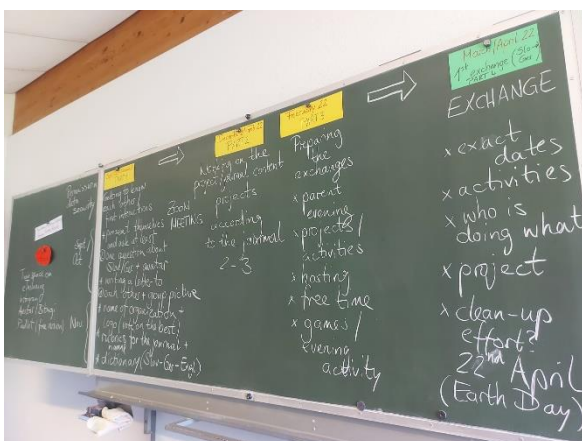 Permission
data
security
Sept/
Okt
Twinspace or
Padlet (for review)
Nov
Getting to know
each other
first instructions
+ present themselves
and ask at least
one question about
+ writing a letter to
each other + group picture
+ name of organization +
Logo (vote on the best)
+ rubrics for the journal +
+ dictionary (Slov-Ge-Engl)
ZOOM
MEETING
PART 2
Working on the
project/journal content
projects
according
to the journal
2-3
February 22
Preparing
the
exchanges
x parent
evening
x projects/
activities
x hosting
x free time
x games/
Evening
activity
March/April 22
1st exchange (Slo→
Ger)
EXCHANGE
x exact
dates
x activities
x who is
doing what
x project
x clean-up
effort?
22nd April
(Earth Day)